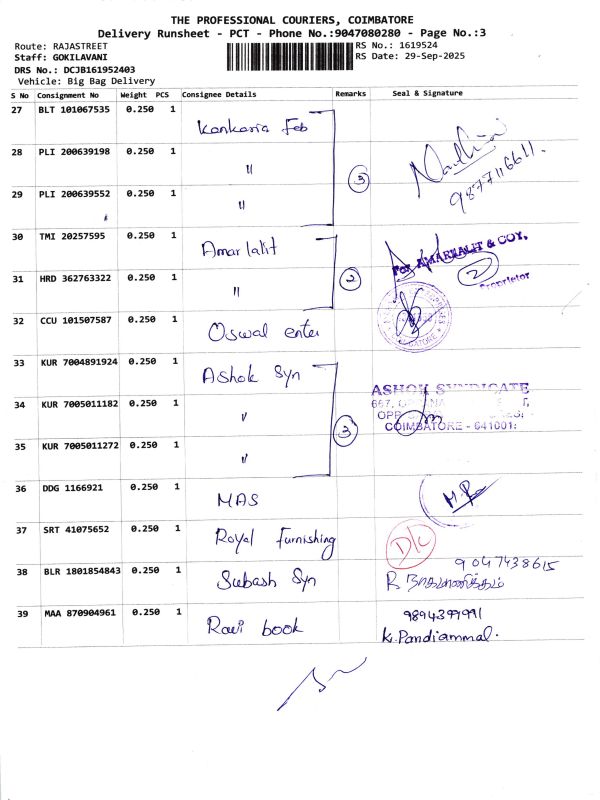 THE PROFESSIONAL COURIERS, COIMBATORE
Delivery Runsheet - PCT - Phone No.:9047080280 - Page No.:3
Route: RAJASTREET
RS No.: 1619524
Staff: GOKILAVANI
RS Date: 29-Sep-2025
DRS No.: DCJB161952403
Vehicle: Big Bag Delivery
S No Consignment No Weight PCS Consignee Details Remarks Seal & Signature
27 BLT 101067535 0.250 1 Kankaria Feb
28 PLI 200639198 0.250 1 〃 3
9877116611
29 PLI 200639552 0.250 1 〃
30 TMI 20257595 0.250 1 Amar lalit For AMARLALIT & COY.
31 HRD 362763322 0.250 1 〃 2 2 Proprietor
32 CCU 101507587 0.250 1 Oswal enter
33 KUR 7004891924 0.250 1 Ashok Syn
ASHOK SYNDICATE
34 KUR 7005011182 0.250 1 〃 3
COIMBATORE - 641001.
35 KUR 7005011272 0.250 1 〃
36 DDG 1166921 0.250 1 MAS
37 SRT 41075652 0.250 1 Royal Furnishing D/C
9047438615
38 BLR 1801854843 0.250 1 Subash Syn
39 MAA 870904961 0.250 1 Ravi book 9894399991
K. Pandiammal.